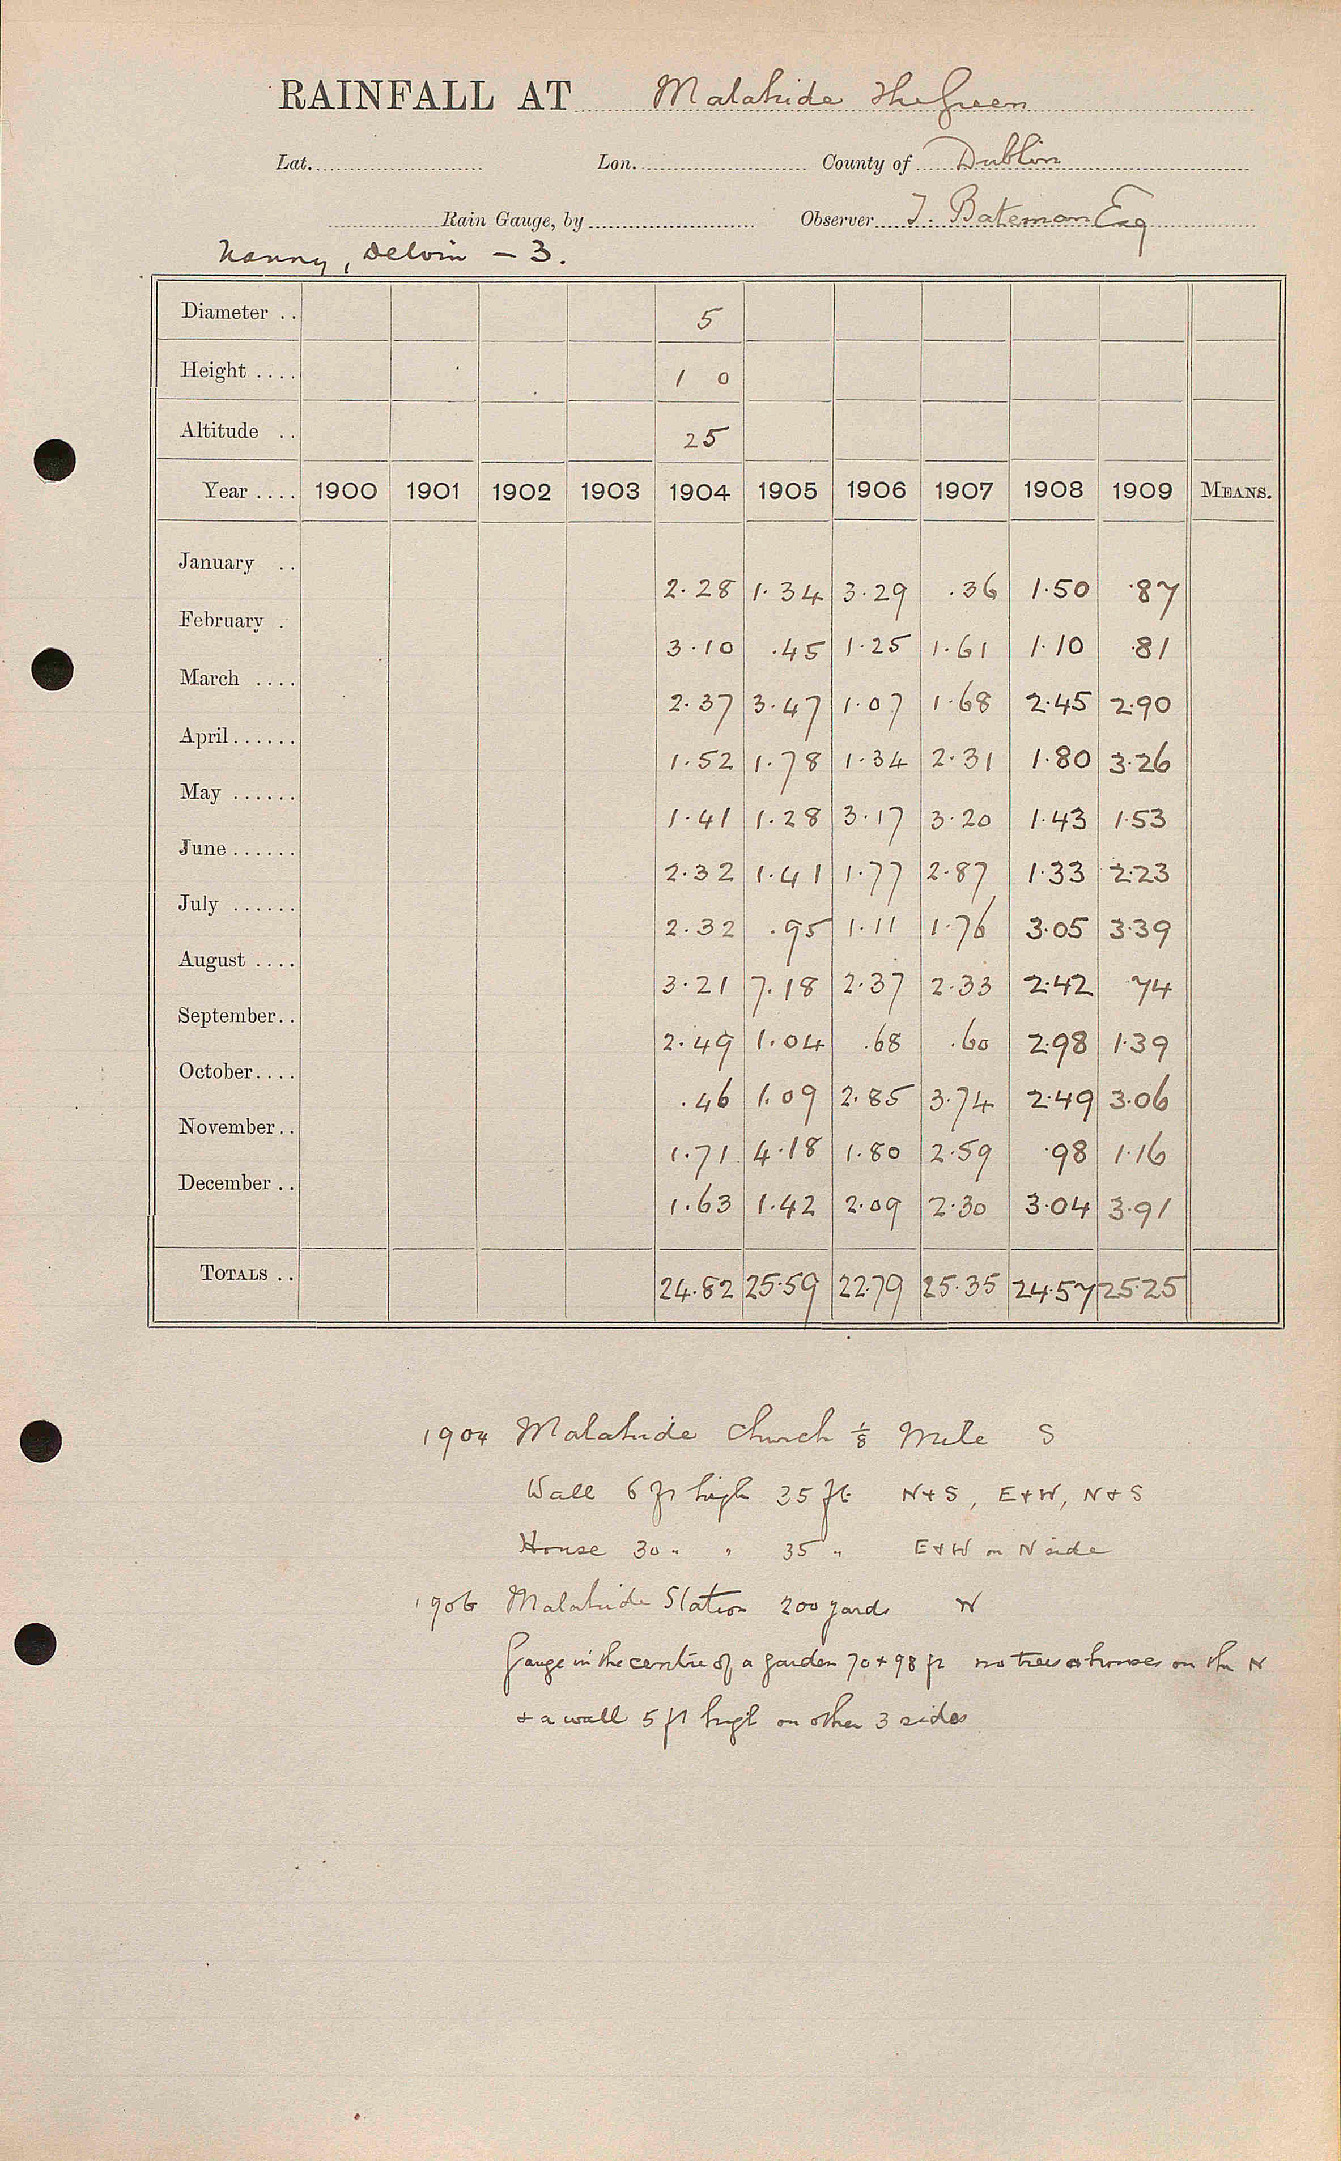 RAINFALL AT Malahide The Green
Lat. Lon. County of Dublin
Rain Gauge, by Observer J. Bateman Esq
Nanny, Delvin - 3.
Diameter .. 5
Height .... 1 0
Altitude .. 25
Year .... 1900 1901 1902 1903 1904 1905 1906 1907 1908 1909 MEANS.
January .. 2.28 1.34 3.29 .36 1.50 .87
February . 3.10 .45 1.25 1.61 1.10 .81
March .... 2.37 3.47 1.07 1.68 2.45 2.90
April...... 1.52 1.78 1.34 2.31 1.80 3.26
May ...... 1.41 1.28 3.17 3.20 1.43 1.53
June...... 2.32 1.41 1.77 2.87 1.33 2.23
July ...... 2.32 .95 1.11 1.76 3.05 3.39
August .... 3.21 7.18 2.37 2.33 2.42 74
September.. 2.49 1.04 .68 .60 2.98 1.39
October.... .46 1.09 2.85 3.74 2.49 3.06
November.. 1.71 4.18 1.80 2.59 .98 1.16
December .. 1.63 1.42 2.09 2.30 3.04 3.91
TOTALS .. 24.82 25.59 22.79 25.35 24.57 25.25
1904 Malahide Church 1/8 Mile S
Wall 6 ft high 35 ft N+S, E+W, N+S
House 30 " " 35 " E+W on N side
1906 Malahide Station 200 yards W
Gauge in the centre of a garden 70 + 98 ft no trees or houses on the N
+ a wall 5 ft high on other 3 sides